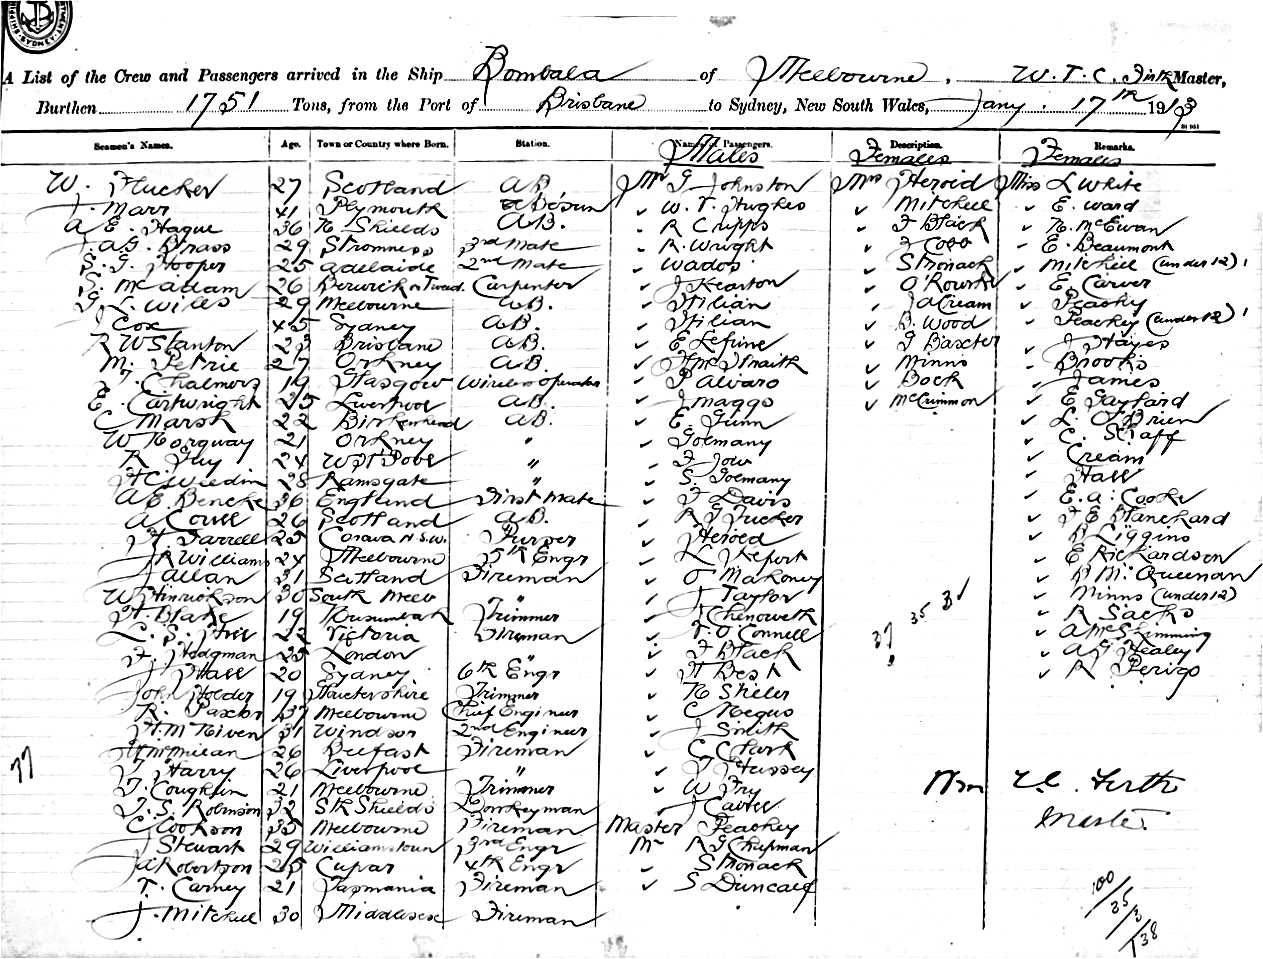 A List of the Crew and Passengers arrived in the Ship Bombala of Melbourne, W. T. C. Firth Master,
Burthen 1751 Tons, from the Port of Brisbane to Sydney, New South Wales, Jany. 17th 1913
Seamen's Names. Age. Town or Country where Born. Station. Names of Passengers. Description. Remarks.
Males Females Females
W. Flucker 27 Scotland A.B. Mr G Johnston Mrs Herold Miss L White
J. Marr 41 Plymouth Bosun W. T. Hughes Mitchell E. Ward
A E. Hague 36 N Shields A.B. R Cripps F Black N. McEwan
J. A. G. Brass 29 Stromness 3rd Mate R. Wright J Cobb E. Beaumont
S. G. Hooper 25 Adelaide 2nd Mate Wados Stronack Mitchell (under 12) 1
S. McAdam 26 Berwick on Tweed. Carpenter J Kearton O'Rourke E. Carver
G. L. Wiles 29 Melbourne A.B. Hilian J A Cream Peachy
J Cox 45 Sydney A.B. Hilian B. Wood Peachey (under 12) 1
R W Stanton 23 Brisbane A.B. E Lefine G Baxter J Hayes
M. Petrie 27 Orkney A.B. H McStraith Minns Brooks
J. Chalmers 19 Glasgow Wireless Operator P Alvaro Bock James
E. Cartwright 25 Liverpool A.B. J Maggs McCrimmon E Gayford
C Marsh 22 Birkenhead A.B. E Gunn L. O'Brien
W Norquay 21 Orkney " Goemany C. Scraff
R Guy 24 " J Jow Cream
H C Weedin 28 Ramsgate " S. Goemany Hall
A E. Bencke 36 England First Mate F Davis E. A. Cooke
A Coull 26 Scotland A.B. R G Tucker F E Blanchard
H. Farrell 25 Corowa N.S.W. Purser Herold B Liggins
J R Williams 24 Melbourne 5th Engr L Kefort E Rickardson
J Allan 31 Scotland Fireman O Mahoney P McQueenan
W Hinrickson 30 South Melb " J Taylor Minns (under 12)
H. Blake 19 Trimmer J Chenoweth 37 35 3 R Sacks
L. S. 22 Victoria Fireman T. O'Connell A McSkimming
F. Hodgman 25 London " F Black A G Healey
J Hall 20 Sydney 6th Engr H Best R Perigo
John Holder 19 Trimmer N Skeler
R. Paxton 37 Melbourne Chief Engineer C Negus
H. McNiven 31 Windsor 2nd Engineer J Smith
H McMillan 26 Belfast Fireman C Clark
77 T Harry 26 Liverpool " T Hussey
T. Coughlin 21 Melbourne Trimmer W Fry Wm T. C. Firth
T. S. Robinson 32 Sth Shields Donkeyman J Carter
C Cookson 33 Melbourne Fireman Master Peachey Master.
J Stewart 29 Williamstown 3rd Engr Mr R G Chapman
J A Robertson 25 Cupar 4th Engr Stronack
T. Carney 21 Tasmania Fireman S Duncalf 100/35/3/138
J. Mitchell 30 Middlesex Fireman